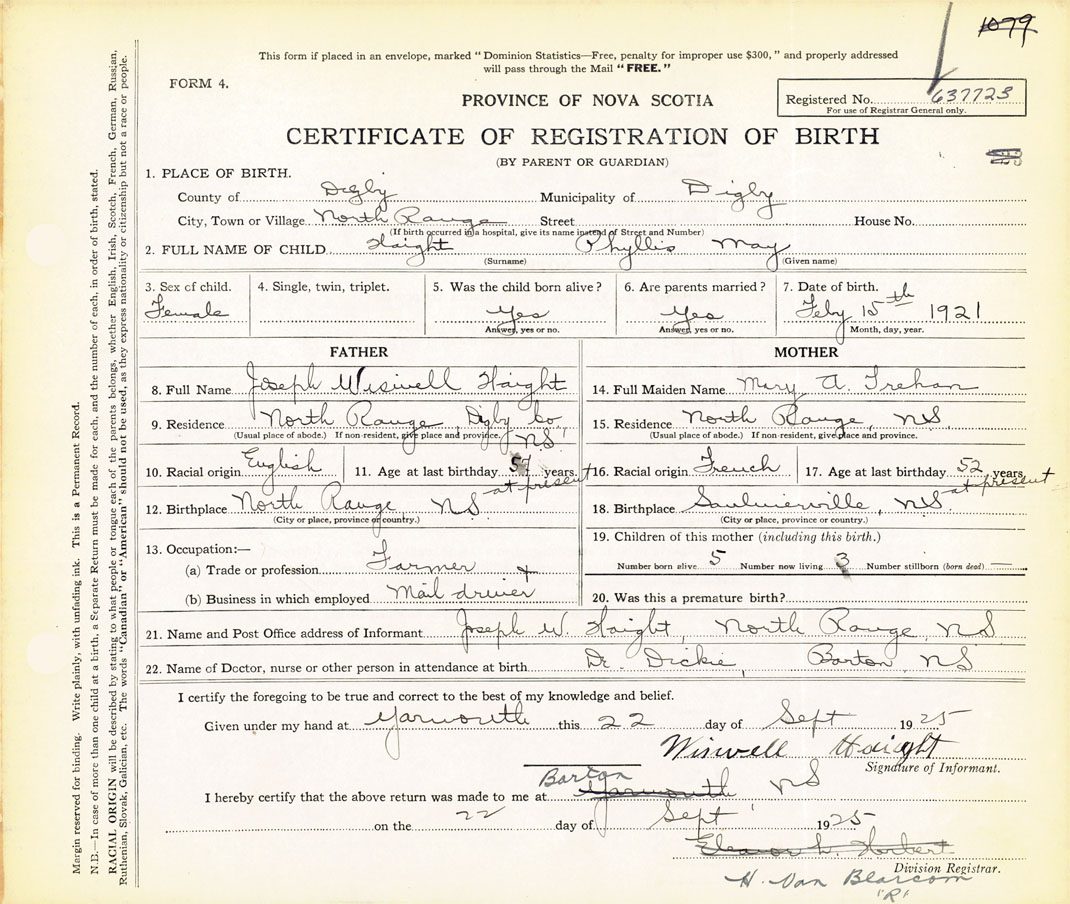 1079
This form if placed in an envelope, marked "Dominion Statistics—Free, penalty for improper use $300," and properly addressed
will pass through the Mail "FREE."
FORM 4.
PROVINCE OF NOVA SCOTIA
Registered No. 637723
For use of Registrar General only.
CERTIFICATE OF REGISTRATION OF BIRTH
(BY PARENT OR GUARDIAN)
1. PLACE OF BIRTH.
County of Digby Municipality of Digby
City, Town or Village North Range Street House No.
(If birth occurred in a hospital, give its name instead of Street and Number)
2. FULL NAME OF CHILD Haight Phyllis May
(Surname) (Given name)
3. Sex of child. 4. Single, twin, triplet. 5. Was the child born alive? 6. Are parents married? 7. Date of birth.
Female Yes Yes Feby 15th 1921
Answer, yes or no. Answer, yes or no. Month, day, year.
FATHER MOTHER
8. Full Name Joseph Wiswell Haight 14. Full Maiden Name Mary A. Trehan
9. Residence North Range, Digby Co, NS 15. Residence North Range, NS
(Usual place of abode.) If non-resident, give place and province. (Usual place of abode.) If non-resident, give place and province.
10. Racial origin English 11. Age at last birthday years. at present 16. Racial origin French 17. Age at last birthday 52 years at present
12. Birthplace North Range NS 18. Birthplace Saulnierville, NS
(City or place, province or country.) (City or place, province or country.)
13. Occupation:— 19. Children of this mother (including this birth.)
(a) Trade or profession Farmer + Number born alive 5 Number now living 3 Number stillborn (born dead) —
(b) Business in which employed Mail driver 20. Was this a premature birth?
21. Name and Post Office address of Informant Joseph W. Haight, North Range, NS
22. Name of Doctor, nurse or other person in attendance at birth Dr. Dickie, Barton, NS
I certify the foregoing to be true and correct to the best of my knowledge and belief.
Given under my hand at Yarmouth this 22 day of Sept 1925
Wiswell Haight
Signature of Informant.
Barton
I hereby certify that the above return was made to me at Yarmouth NS
on the 22 day of Sept 1925
Eleanor L. Horbert
Division Registrar.
H. Van Blarcom
"R"
Margin reserved for binding. Write plainly, with unfading ink. This is a Permanent Record.
N.B.—In case of more than one child at a birth, a Separate Return must be made for each, and the number of each, in order of birth, stated.
RACIAL ORIGIN will be described by stating to what people or tongue each of the parents belongs, whether English, Irish, Scotch, French, German, Russian,
Ruthenian, Slovak, Galician, etc. The words "Canadian" or "American" should not be used, as they express nationality or citizenship but not a race or people.